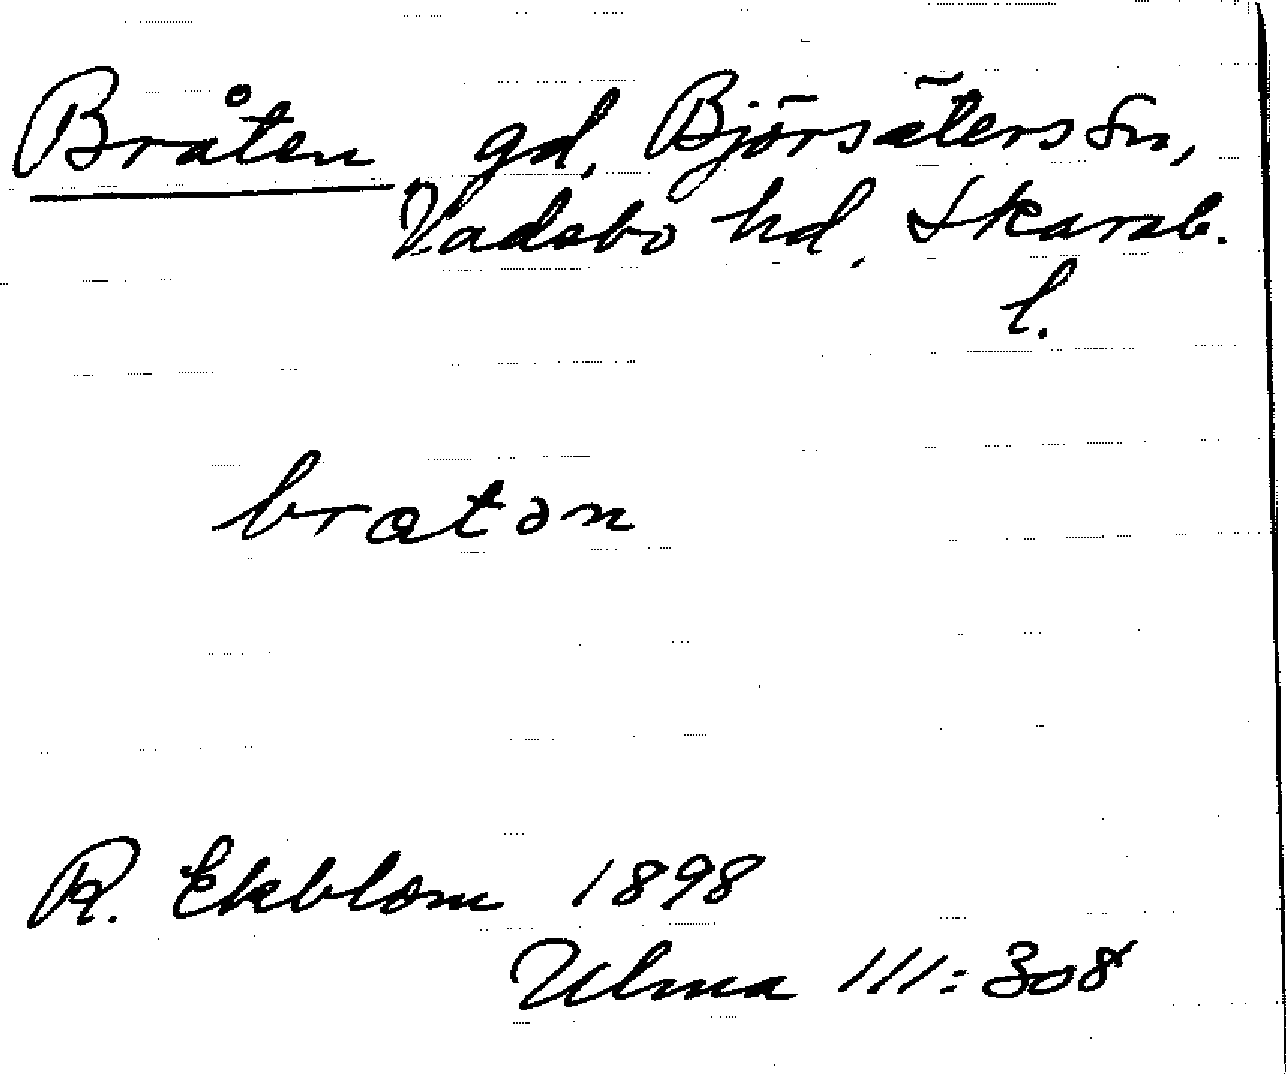 Bråten gd, Björsäters sn,
Vadsbo hd, Skarab.
l.
bratən
R. Ekblom 1898
Ulma 111:308